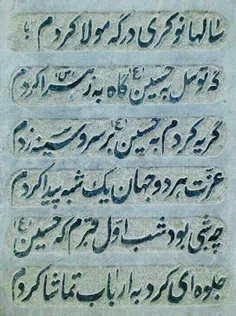 سالها نوکری درگه مولا کردم
گه توسل به حسین ع گاه به زهرا س کردم
گریه کردم به حسین ع بر سر و سینه زدم
عزت هر دو جهان یک شبه پیدا کردم
چه شبی بود شب اول قبرم که حسین ع
جلوه ای کرد به ارباب تماشا کردم